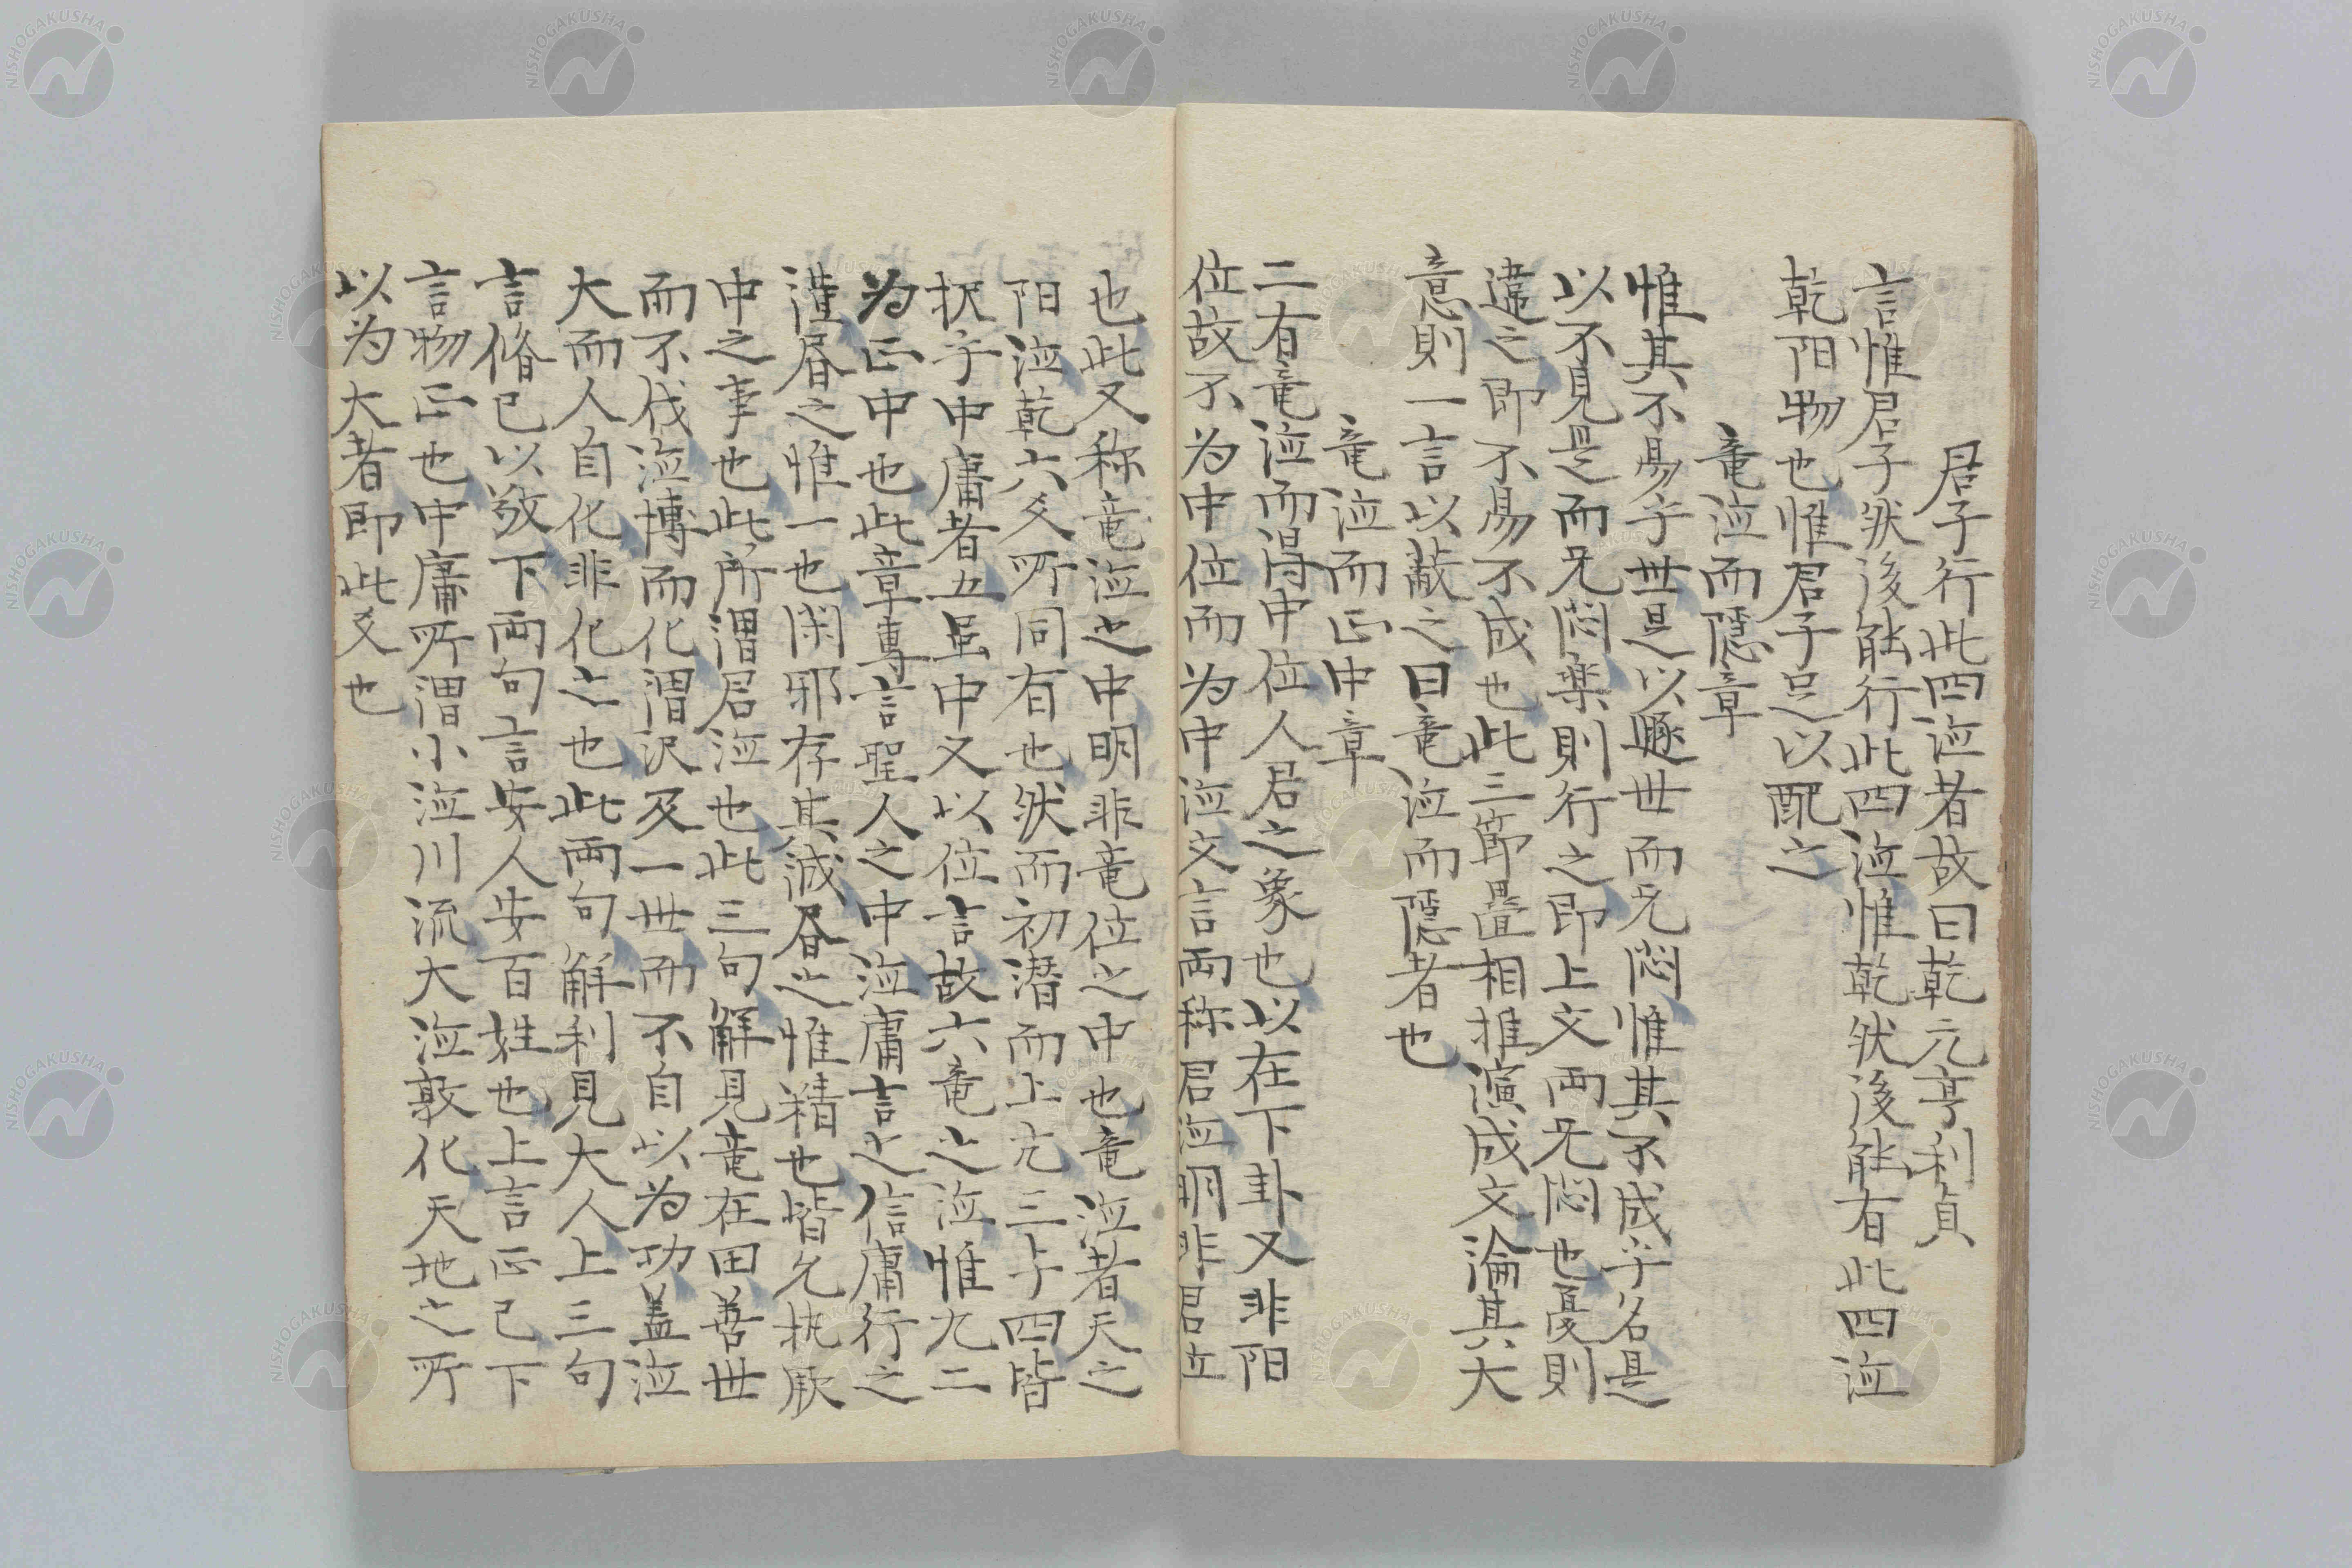 君子行此四徳者故曰乾元亨利貞
言惟君子然後能行此四徳惟乾然後能有此四徳
乾阳物也惟君子足以配之
竜徳而隠章
惟其不易乎世是以遯世而无悶惟其不成乎名是
以不見是而无悶楽則行之即上文両无悶也憂則
違之即不易不成也此三節畳相推演成文論其大
意則一言以蔽之曰竜徳而隠者也
竜徳而正中章
二有竜徳而得中位人君之象也以在下卦又非阳
位故不为中位而为中徳文言両称君徳明非君位
也此又称竜徳之中明非竜位之中也竜徳者天之
阳徳乾六爻所同有也然而初潜而上亢三与四皆
択乎中庸者五虽中又以位言故六竜之徳惟九二
为正中也此章専言聖人之中徳庸言之信庸行之
謹之惟一也閑邪存其誠之惟精也皆允执厥
中之事也此所謂君徳也此三句解見竜在田善世
而不伐徳博而化謂沢及一世而不自以为功盖徳
大而人自化非化之也此両句解利見大人上三句
言脩己以敬下両句言安人安百姓也上言正己下
言物正也中庸所謂小徳川流大徳敦化天地之所
以为大者即此爻也